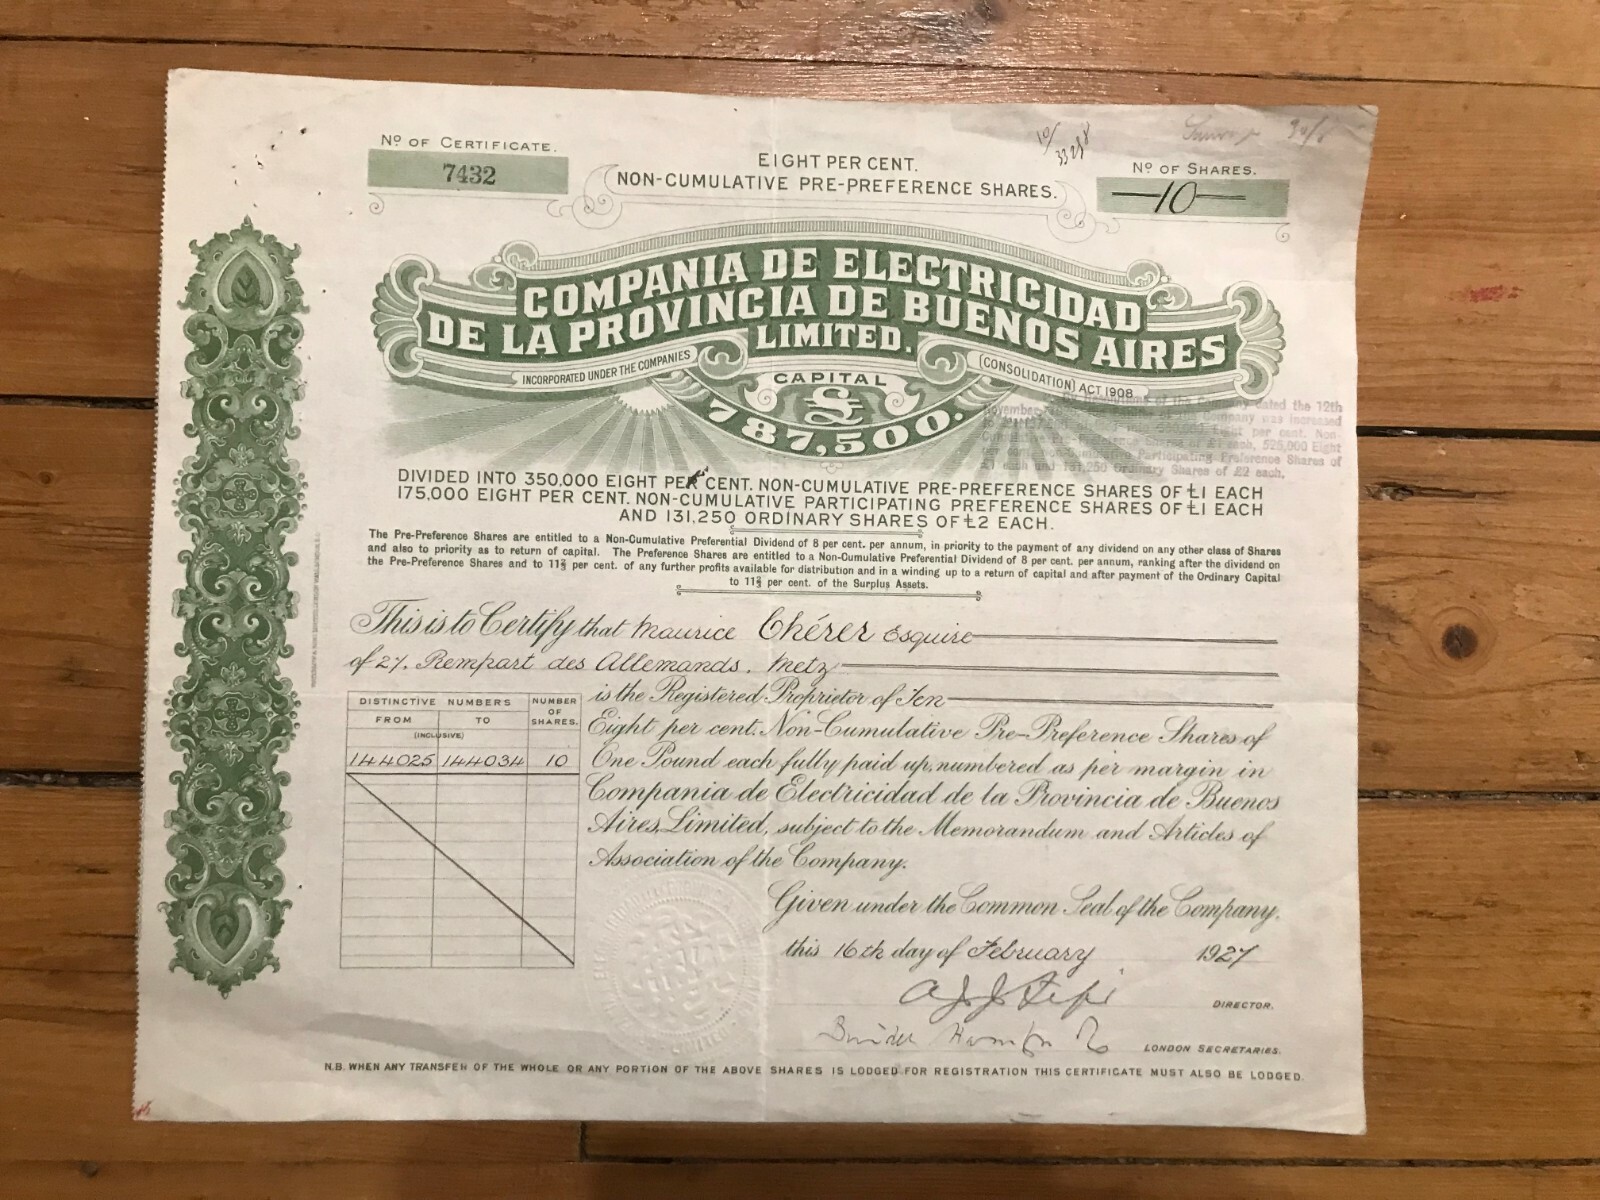 Nº OF CERTIFICATE.
7432
EIGHT PER CENT.
NON-CUMULATIVE PRE-PREFERENCE SHARES.
10/
33298
30/
Nº OF SHARES.
10
COMPANIA DE ELECTRICIDAD
DE LA PROVINCIA DE BUENOS AIRES
LIMITED.
INCORPORATED UNDER THE COMPANIES (CONSOLIDATION) ACT 1908
CAPITAL
£
787,500.
By Resolutions of the Company dated the 12th
November the Company was increased
Eight per cent. Non-
Cumulative Pre-Preference Shares of £1 each, 525,000 Eight
per cent. Non-Cumulative Participating Preference Shares of
£1 each and 131,250 Ordinary Shares of £2 each.
DIVIDED INTO 350,000 EIGHT PER CENT. NON-CUMULATIVE PRE-PREFERENCE SHARES OF £1 EACH
175,000 EIGHT PER CENT. NON-CUMULATIVE PARTICIPATING PREFERENCE SHARES OF £1 EACH
AND 131,250 ORDINARY SHARES OF £2 EACH.
The Pre-Preference Shares are entitled to a Non-Cumulative Preferential Dividend of 8 per cent. per annum, in priority to the payment of any dividend on any other class of Shares
and also to priority as to return of capital. The Preference Shares are entitled to a Non-Cumulative Preferential Dividend of 8 per cent. per annum, ranking after the dividend on
the Pre-Preference Shares and to 11 2/3 per cent. of any further profits available for distribution and in a winding up to a return of capital and after payment of the Ordinary Capital
to 11 2/3 per cent. of the Surplus Assets.
This is to Certify that Maurice Chérer Esquire
of 27. Rempart des Allemands. Metz
is the Registered Proprietor of Ten
Eight per cent. Non-Cumulative Pre-Preference Shares of
One Pound each fully paid up, numbered as per margin in
Compania de Electricidad de la Provincia de Buenos
Aires, Limited, subject to the Memorandum and Articles of
Association of the Company.
DISTINCTIVE NUMBERS NUMBER OF SHARES.
FROM TO
(INCLUSIVE)
144025 144034 10
Given under the Common Seal of the Company,
this 16th day of February 1927
DIRECTOR.
LONDON SECRETARIES.
N.B. WHEN ANY TRANSFER OF THE WHOLE OR ANY PORTION OF THE ABOVE SHARES IS LODGED FOR REGISTRATION THIS CERTIFICATE MUST ALSO BE LODGED.